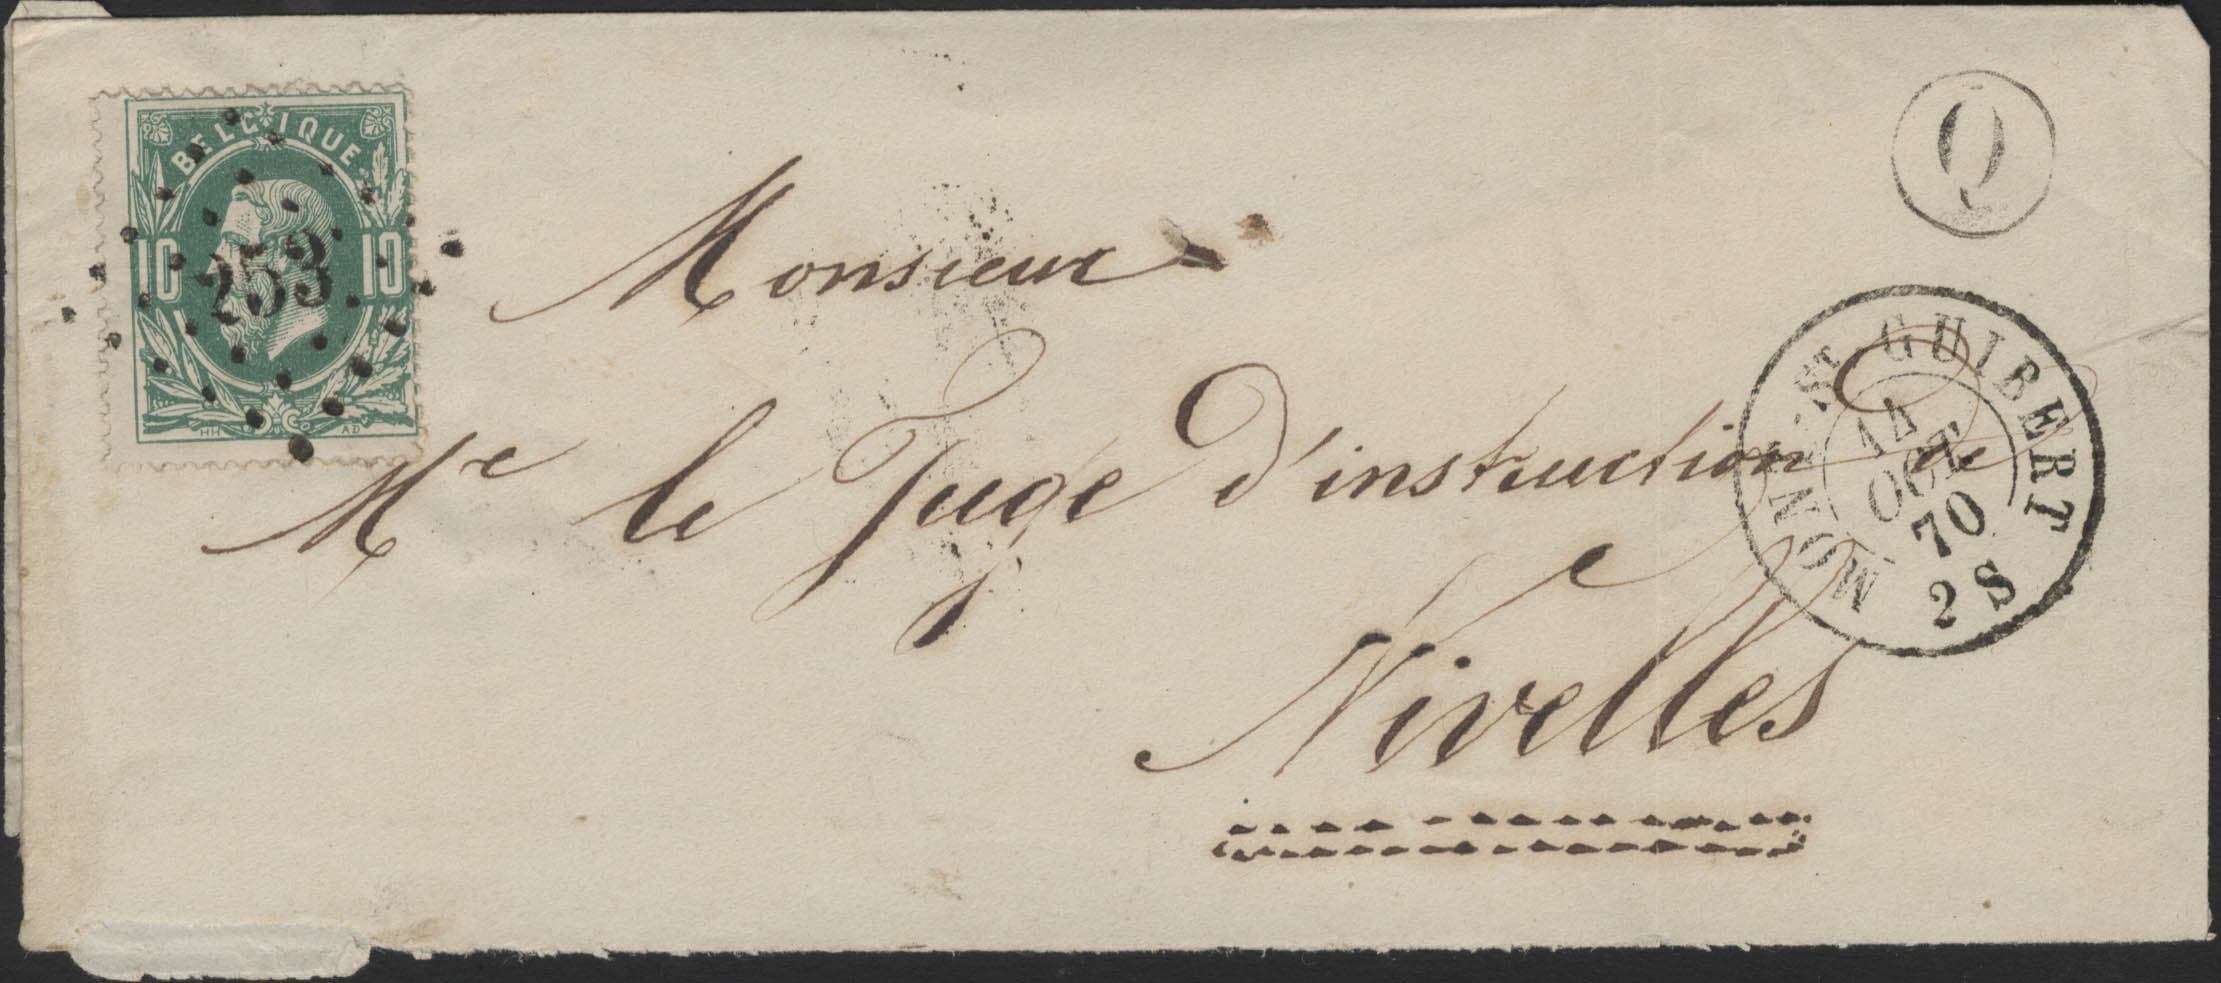 BELGIQUE
10 10
253
HH AD
Q
MONT-ST GUIBERT
14
OCT
70
2 S
Monsieur
Mr le Juge d'instruction de
Nivelles